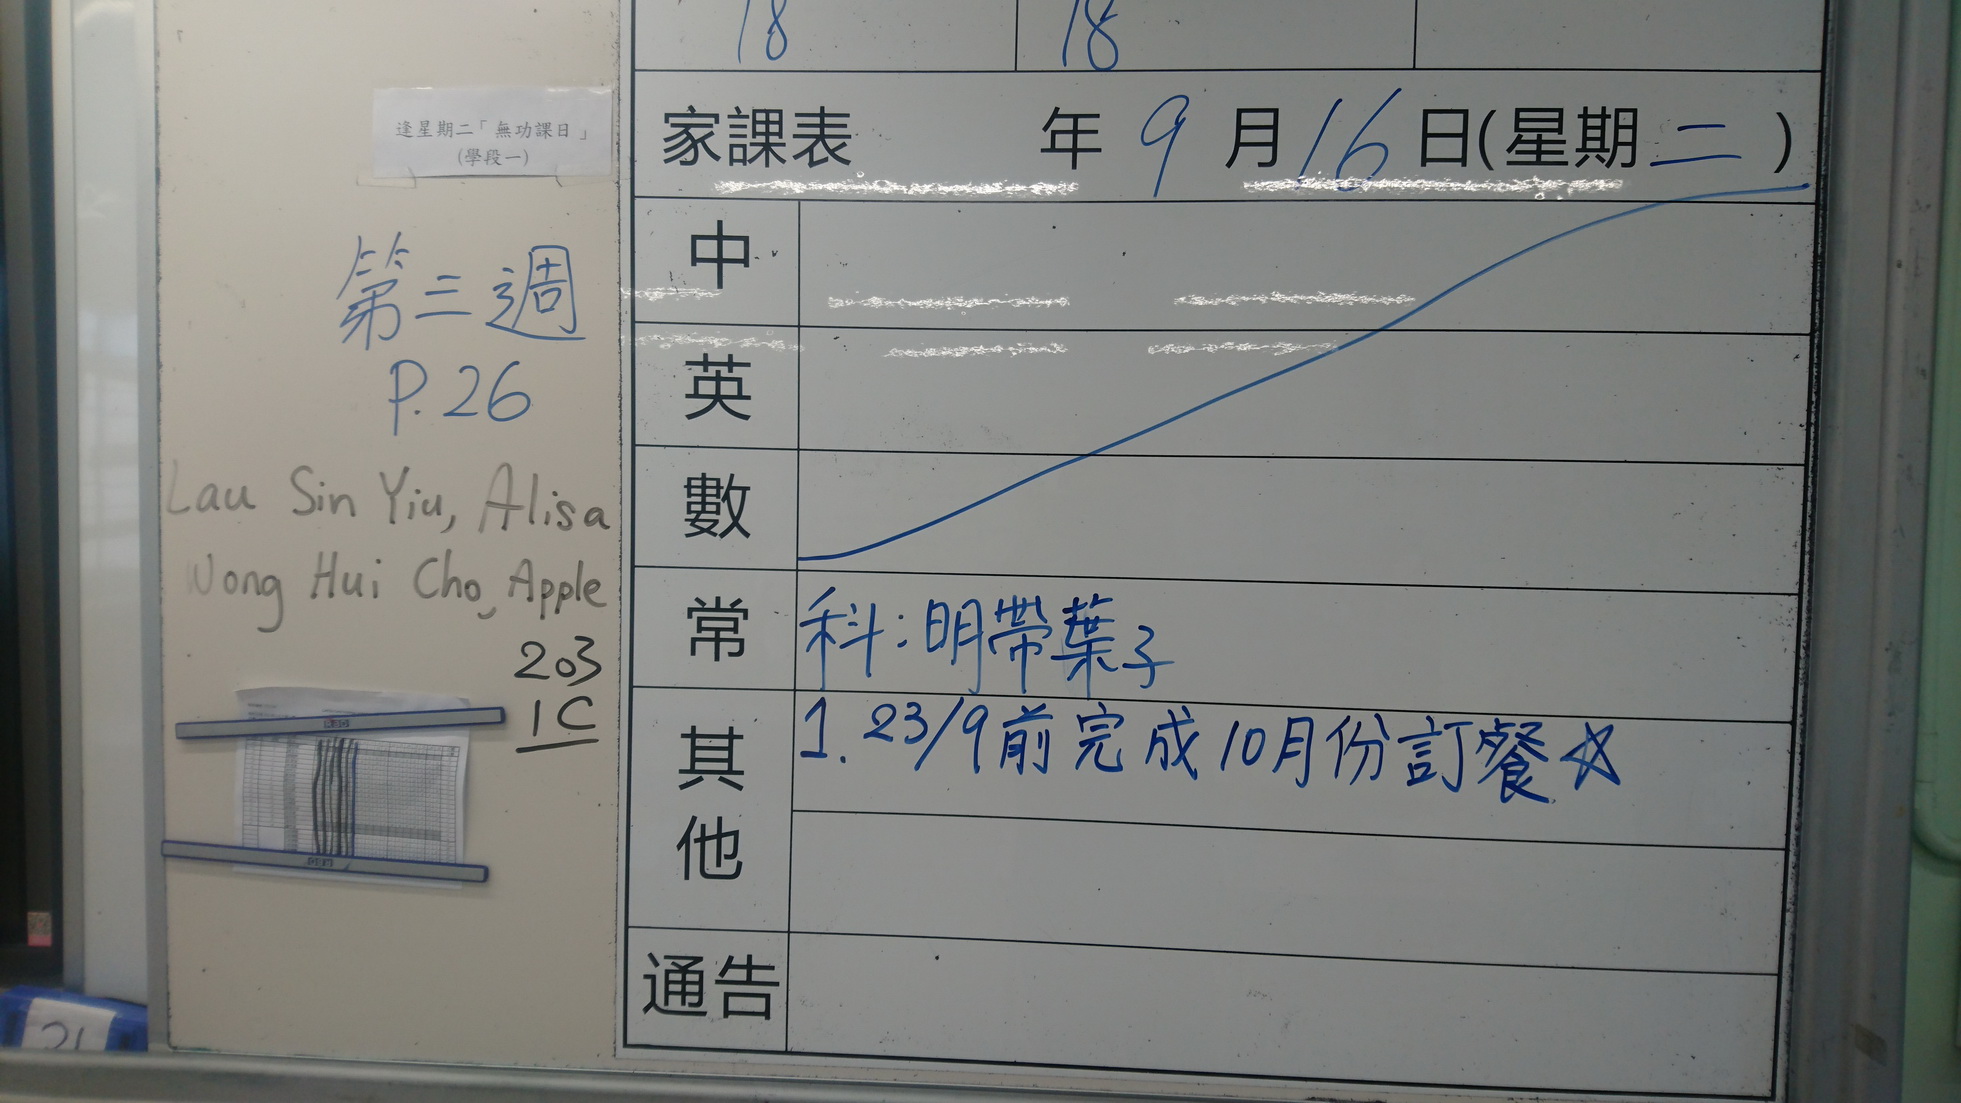 18 18
逢星期二「無功課日」
(學段一)
家課表 年 9 月 16 日(星期 二 )
第三週
P.26
中
英
數
Lau Sin Yiu, Alisa
Wong Hui Cho, Apple
203
1C
常 科:明帶葉子
其他 1. 23/9前完成10月份訂餐☆
通告
21